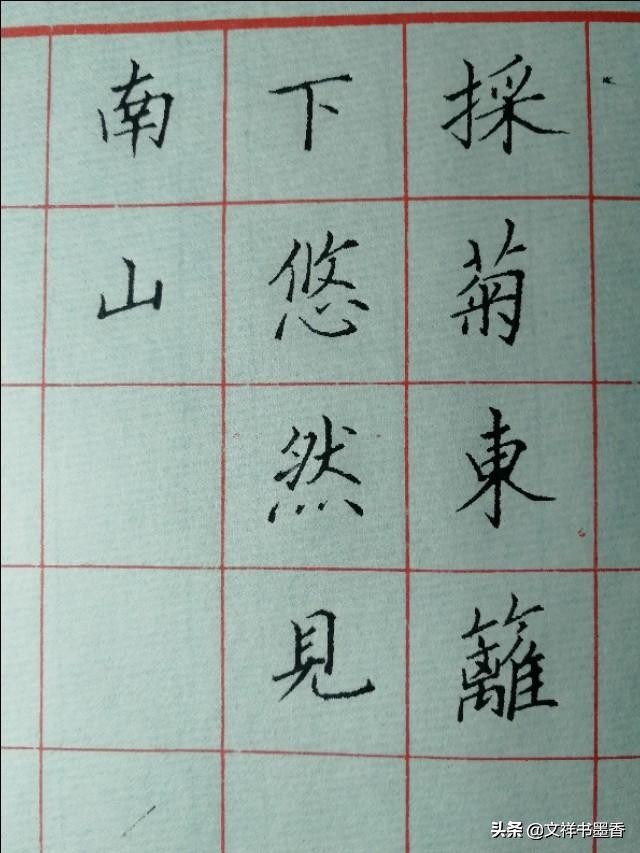 採菊東籬
下悠然見
南山
头条 @文祥书墨香